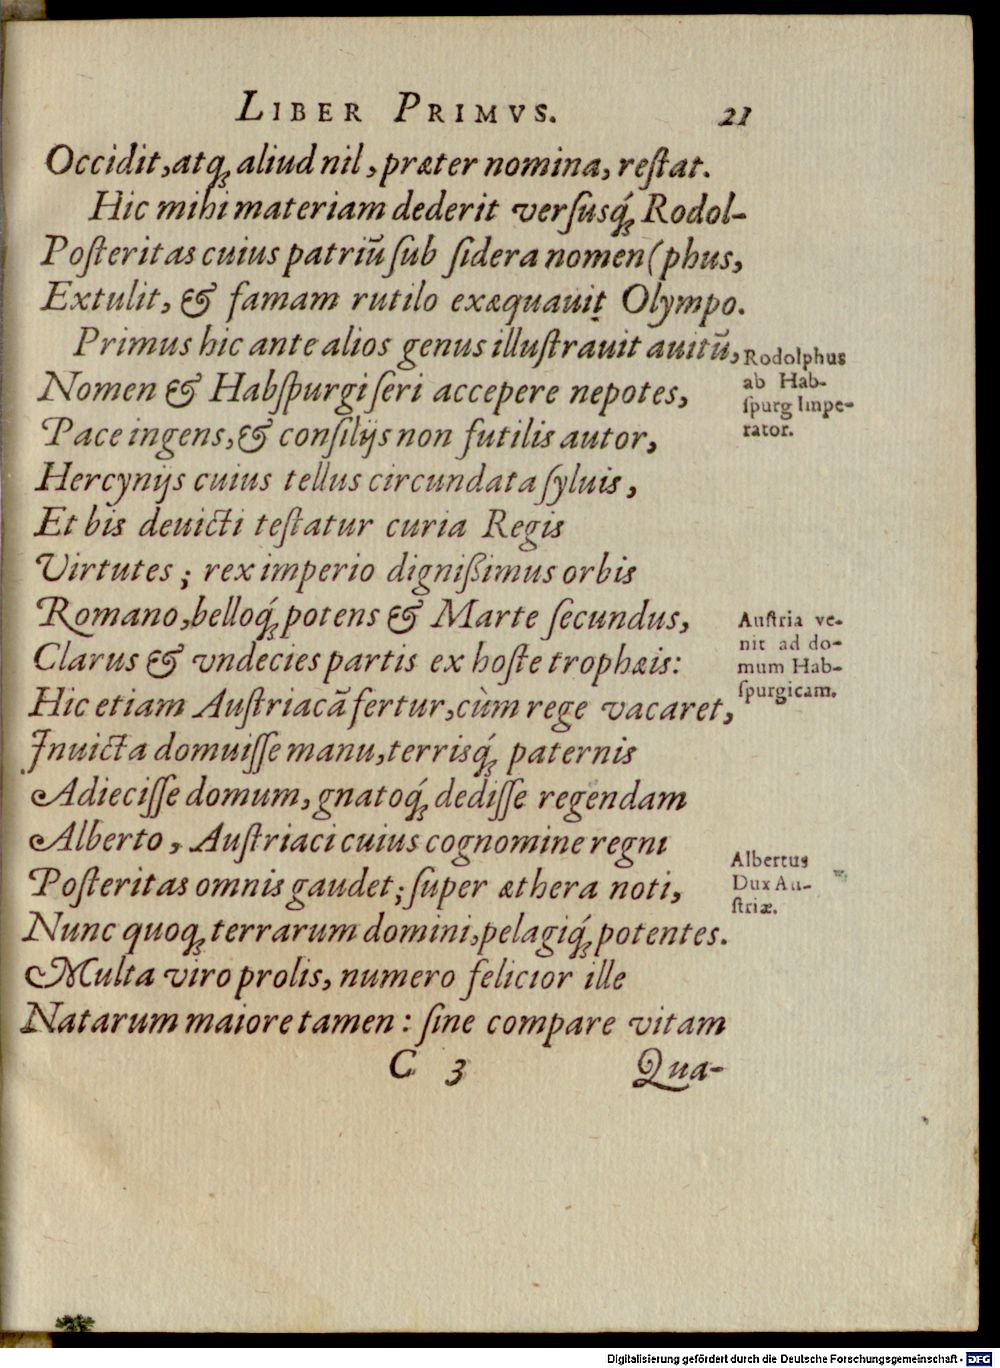 LIBER PRIMVS. 21
Occidit, atq; aliud nil, præter nomina, reſtat.
Hic mihi materiam dederit verſusq́; Rodol-
Poſteritas cuius patriũ ſub ſidera nomen (phus,
Extulit, & famam rutilo exæquauit Olympo.
Primus hic ante alios genus illuſtrauit auitũ,
Nomen & Habſpurgi ſeri accepere nepotes,
Pace ingens, & conſilijs non futilis autor,
Hercynijs cuius tellus circundata ſyluis,
Et bis deuicti teſtatur curia Regis
Virtutes; rex imperio digniſsimus orbis
Romano, belloq́; potens & Marte ſecundus,
Clarus & vndecies partis ex hoſte trophæis:
Hic etiam Auſtriacã fertur, cùm rege vacaret,
Inuicta domuiſſe manu, terrisq́; paternis
Adieciſſe domum, gnatoq́; dediſſe regendam
Alberto, Auſtriaci cuius cognomine regni
Poſteritas omnis gaudet; ſuper æthera noti,
Nunc quoq; terrarum domini, pelagiq́; potentes.
Multa viro prolis, numero felicior ille
Natarum maiore tamen: ſine compare vitam
C 3 Qua-
Rodolphus
ab Hab-
ſpurg Impe-
rator.
Auſtria ve-
nit ad do-
mum Hab-
ſpurgicam.
Albertus
Dux Au-
ſtriæ.
Digitalisierung gefördert durch die Deutsche Forschungsgemeinschaft - DFG